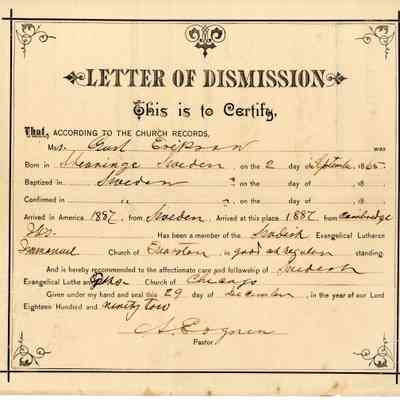 LETTER OF DISMISSION
This is to Certify,
That, ACCORDING TO THE CHURCH RECORDS,
Mr. Erikson was
Born in Sweden, on the 2 day of September, 1865
Baptized in Sweden, on the day of 18 .
Confirmed in " " , on the day of 18 .
Arrived in America 1887, from Sweden. Arrived at this place 1887 from Cambridge
Ills. Has been a member of the Swedish Evangelical Lutheran
Immanuel Church of Evanston, in good and regular standing.
And is hereby recommended to the affectionate care and fellowship of Swedish
Evangelical Lutheran Church of Chicago
Given under my hand and seal this 29 day of December, in the year of our Lord
Eighteen Hundred and ninety two
Pastor.